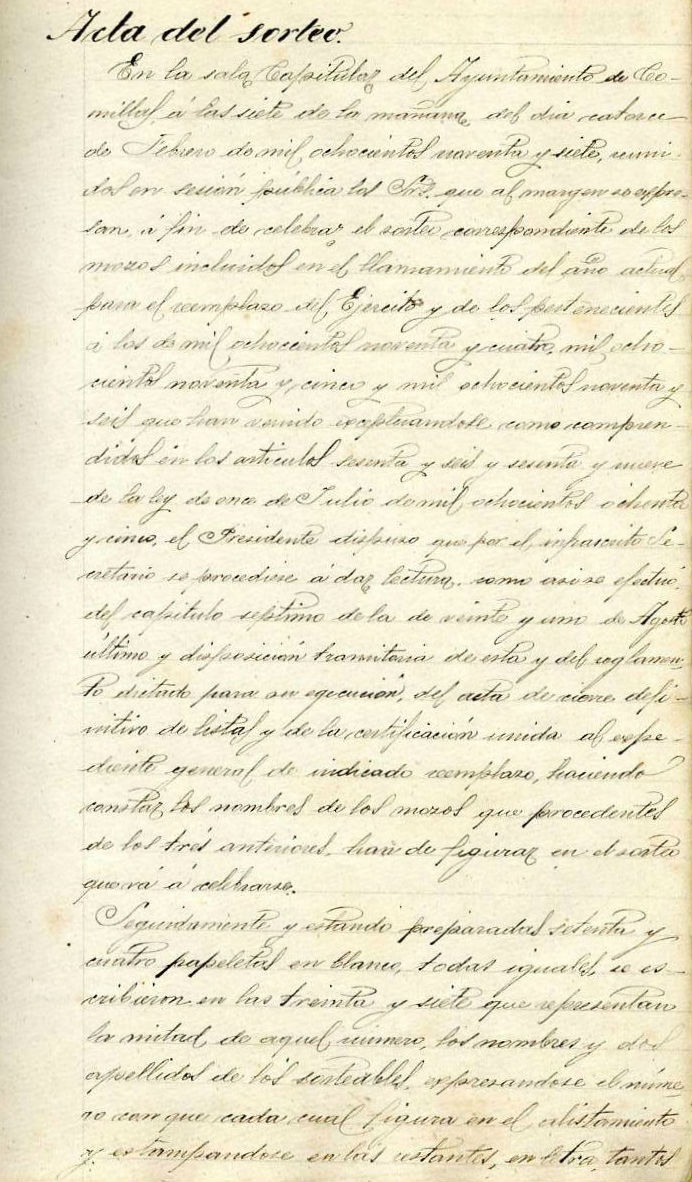 Acta del sorteo.
En la sala Capitular del Ayuntamiento de Co-
millas, á las siete de la mañana del dia catorce
de Febrero de mil ochocientos noventa y siete, reuni-
dos en sesión pública los Sres. que al margen se expre-
san, á fin de celebrar el sorteo correspondiente de los
mozos incluidos en el llamamiento del año actual
para el reemplazo del Ejercito y de los pertenecientes
á los de mil ochocientos noventa y cuatro, mil ocho-
cientos noventa y cinco y mil ochocientos noventa y
seis que han venido exceptuandose como compren-
didos en los articulos sesenta y seis y sesenta y nueve
de la ley de once de Julio de mil ochocientos ochenta
y cinco, el Presidente dispuso que por el infrascrito Se-
cretario se procediese á dar lectura, como asi se efectuó,
del capitulo septimo de la de veinte y uno de Agosto
último y disposición transitoria de esta y del reglamen-
to dictado para su egecución, del acta de cierre defi-
nitivo de listas y de la certificación unida al expe-
diente general de indicado reemplazo, haciendo
constar los nombres de los mozos que procedentes
de los trés anteriores, han de figurar en el sorteo
que vá á celebrarse.
Seguidamente y estando preparadas setenta y
cuatro papeletas en blanco, todas iguales, se es-
cribieron en las treinta y siete que representan
la mitad de aquel número, los nombres y dos
apellidos de los sorteables, expresandose el núme-
ro con que cada cual figura en el alistamiento
y estampandose en las restantes, en letra, tantos